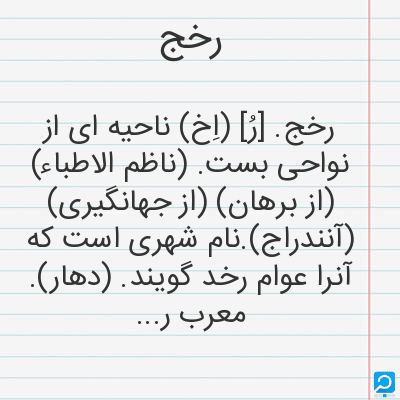 رخج
رخج. [رُ] (اِخ) ناحیه ای از
نواحی بست. (ناظم الاطباء)
(از برهان) (از جهانگیری)
(آنندراج).نام شهری است که
آنرا عوام رخد گویند. (دهار).
معرب ر...